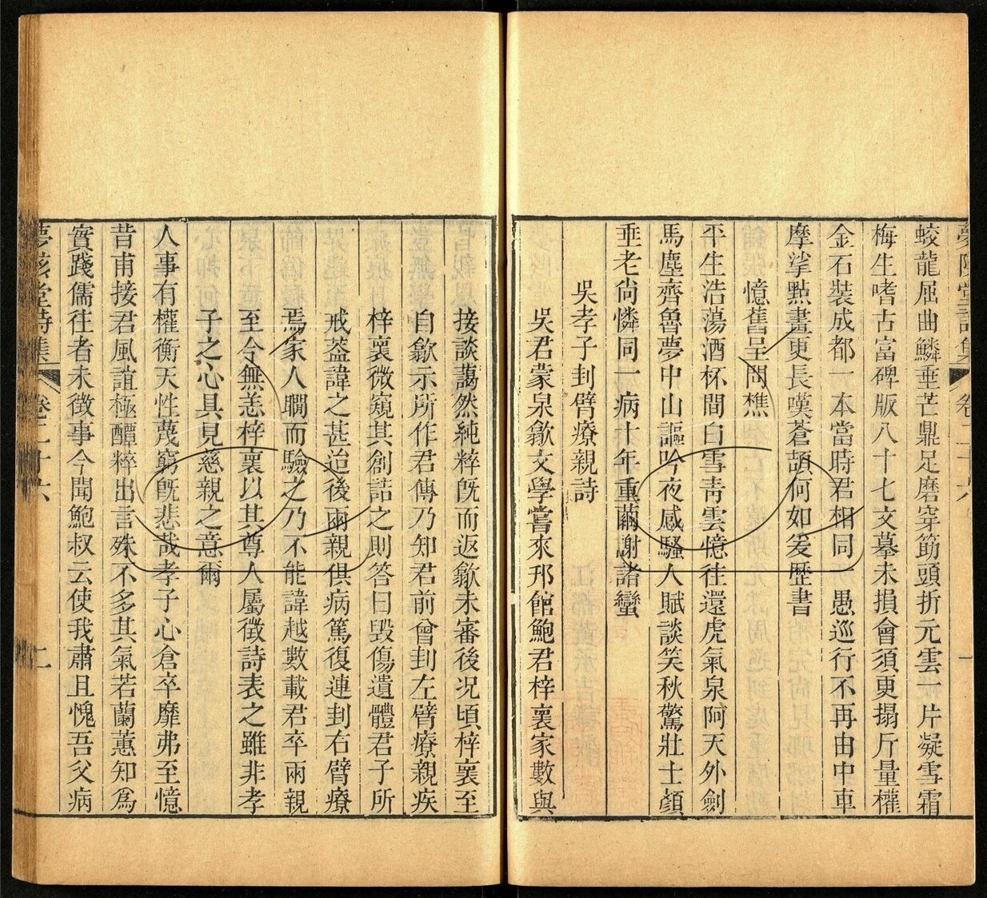 蛟龍屈曲鱗垂芒鼎足磨穿筋頭折元雲一片凝雪霜
梅生嗜古富碑版八十七文摹未損會須更搨斤量權
金石裝成都一本當時君相同愚巡行不再由中車
摩挲點畫更長嘆蒼頡何如爰歷書
憶舊呈問樵
平生浩蕩酒杯間白雪青雲憶往還虎氣泉阿天外劍
馬塵齊魯夢中山謳吟夜感騷人賦談笑秋驚壯士顏
垂老尚憐同一病十年重繭謝諸蠻
吳孝子封臂療親詩
吳君蒙泉歙文學嘗來邗館鮑君梓裏家數與
接談藹然純粹既而返歙未審後况頃梓裏至
自歙示所作君傳乃知君前曾刲左臂療親疾
梓裏微窺其創詰之則答曰毀傷遺體君子所
戒葢諱之甚迨後兩親俱病篤復連刲右臂療
焉家人瞷而驗之乃不能諱越數載君卒兩親
至今無恙梓裏以其尊人屬徵詩表之雖非孝
子之心具見慈親之意爾
人事有權衡天性蔑窮既悲哉孝子心倉卒靡弗至憶
昔甫接君風誼極醰粹出言殊不多其氣若蘭蕙知爲
實踐儒往者未徵事今聞鮑叔云使我肅且愧吾父病
夢陔堂詩集
卷二十六
二